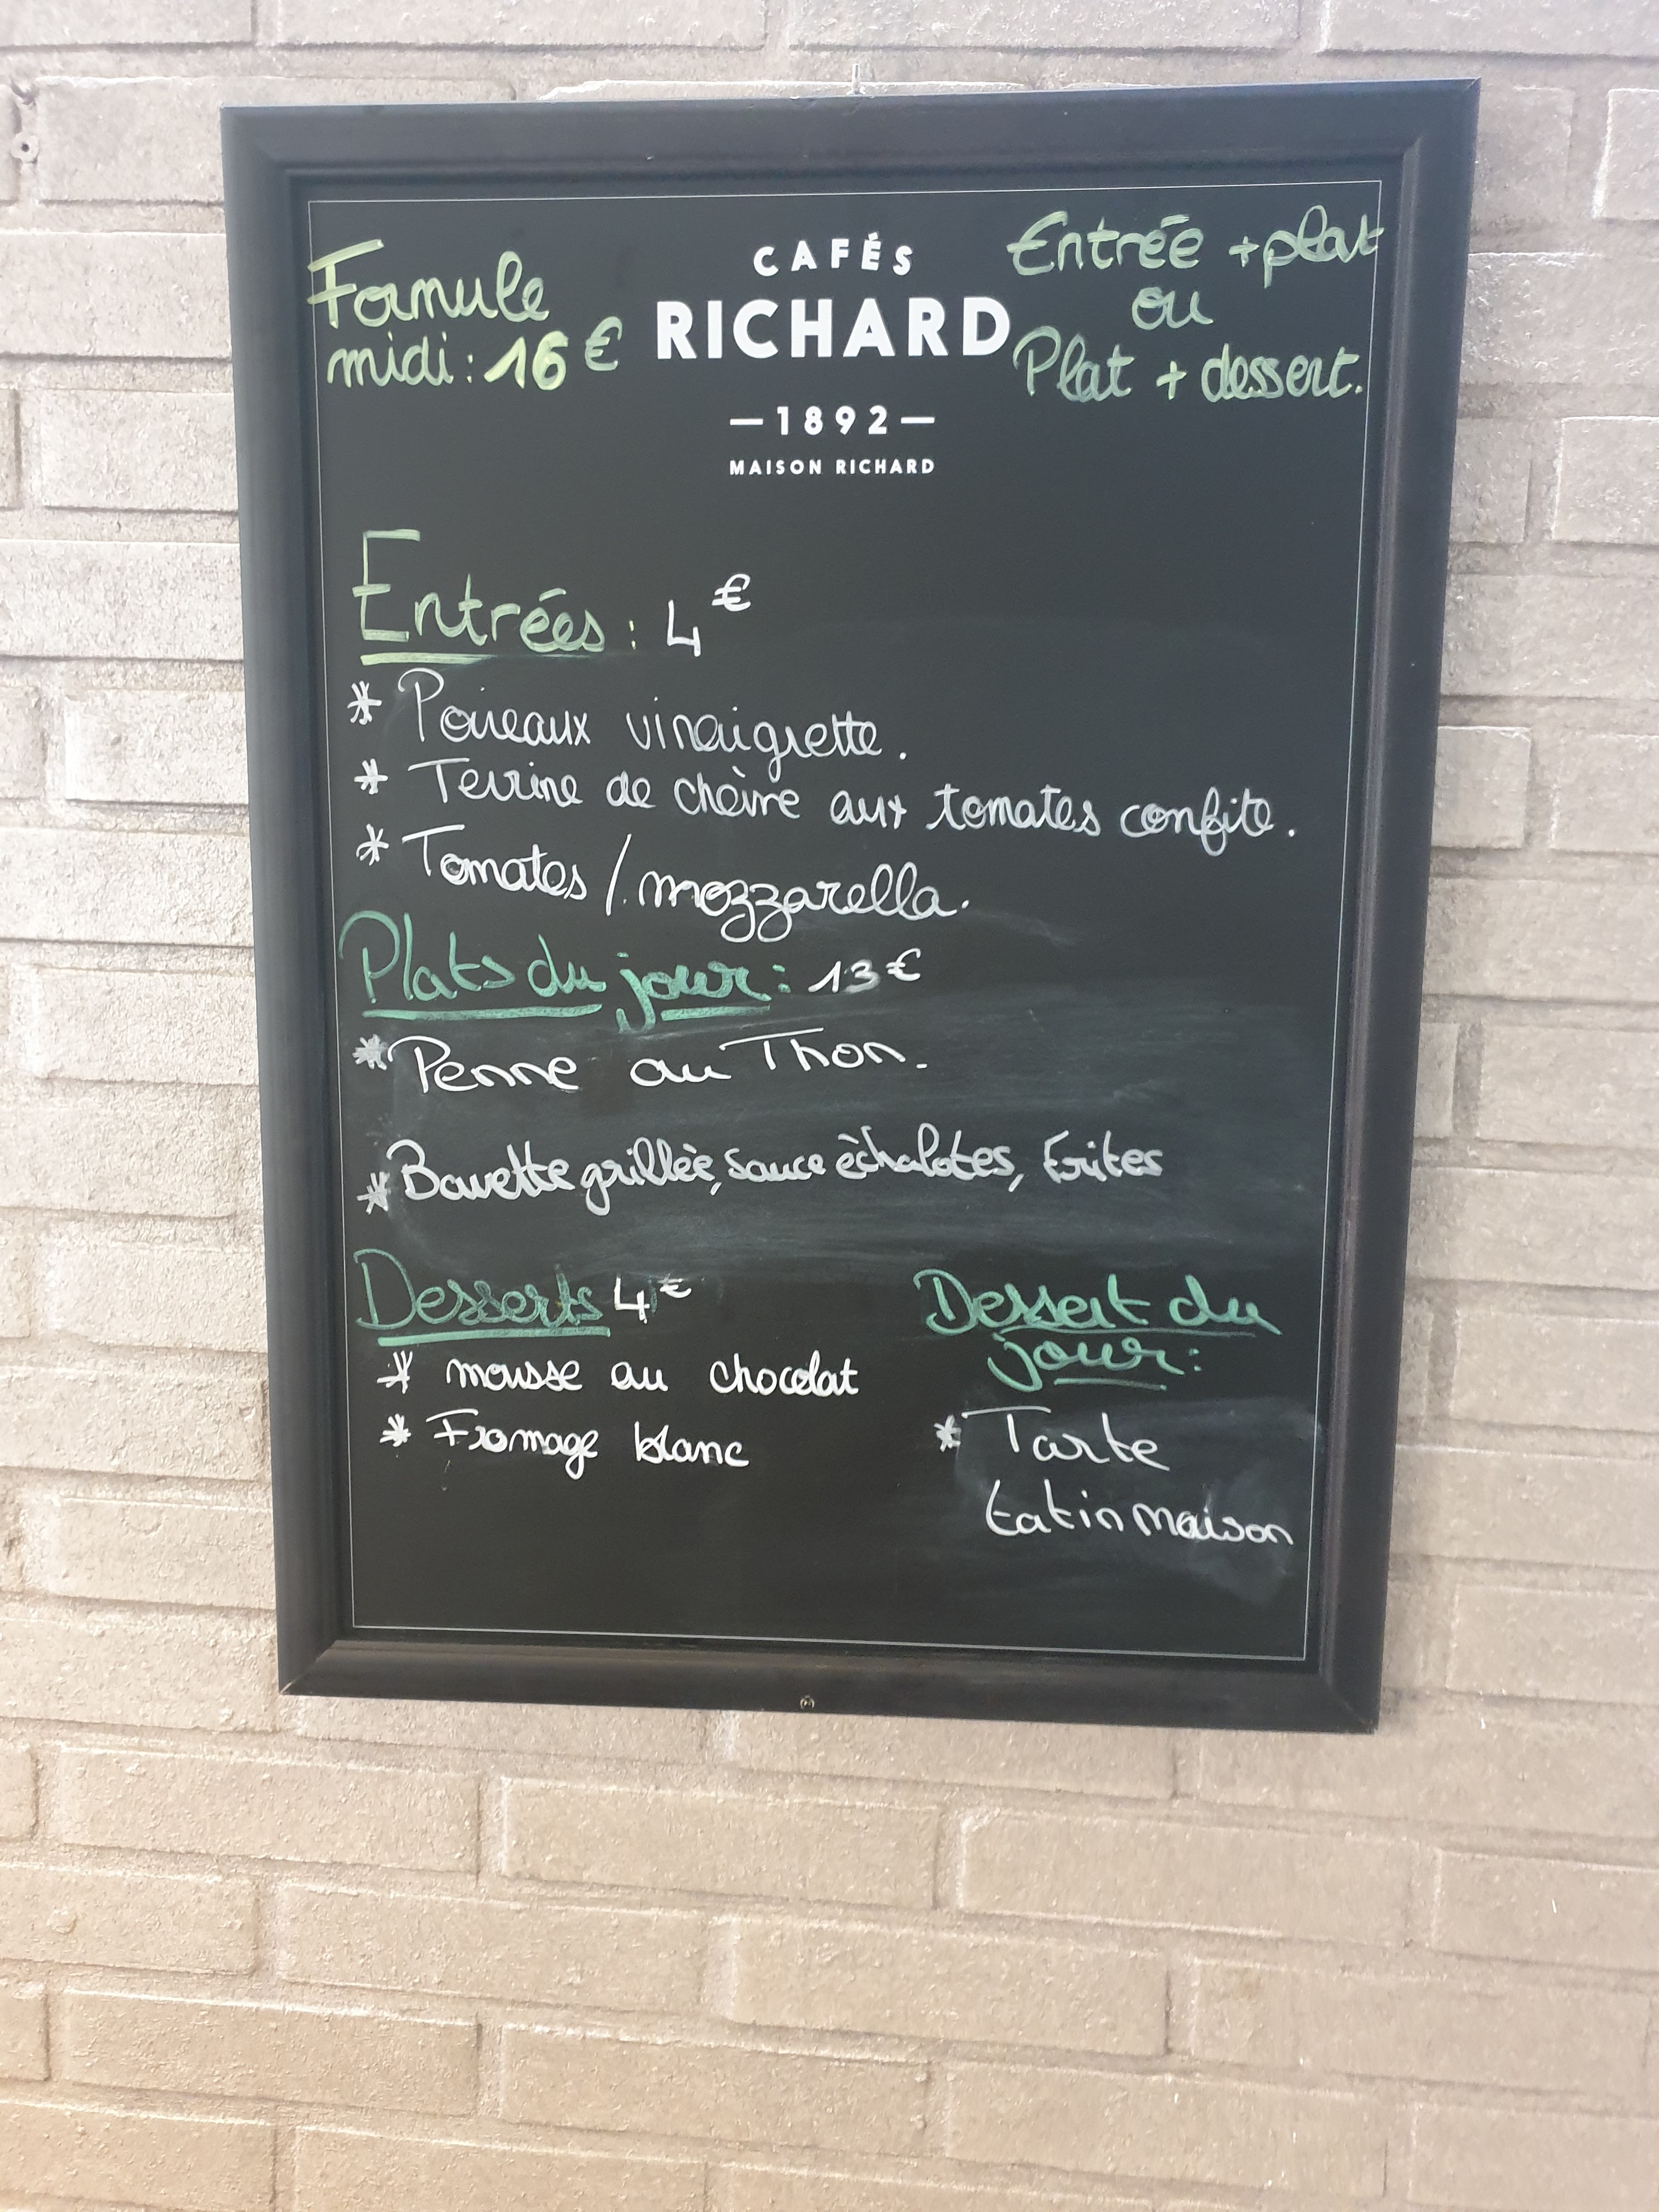 Formule
midi : 16 €
CAFÉS
RICHARD
— 1892 —
MAISON RICHARD
Entrée + plat
ou
Plat + dessert.
Entrées : 4€
* Poireaux vinaigrette.
* Terrine de chèvre aux tomates confite.
* Tomates / mozzarella.
Plats du jour : 13 €
* Penne au Thon.
* Bavette grillèe, sauce èchalotes, frites
Desserts 4€
* mousse au chocolat
* Fromage blanc
Dessert du
jour :
* Tarte
tatin maison